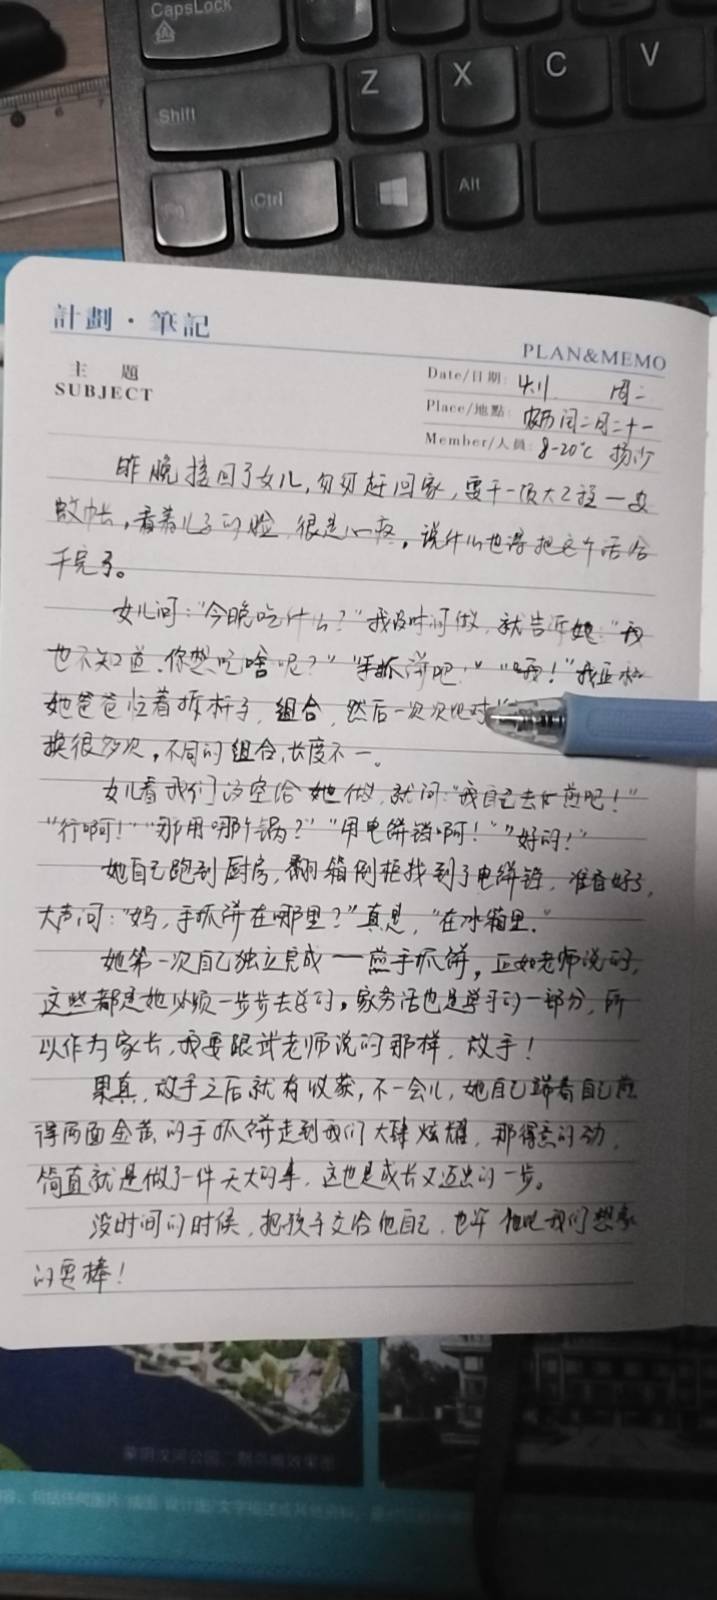 CapsLock
Z
X
C
V
Shift
Fn
Ctrl
Alt
計劃·筆記
PLAN&MEMO
主 題
SUBJECT
Date/日期: 周二
Place/地點: 农历闰二月二十一
Member/人員: 8-20℃ 扬沙
昨晚接回了女儿,匆匆赶回家,要干一项大工程一安
蚊帐,看着儿子的脸,很是心疼,说什么也得把这个活给
干完了。
女儿问:“今晚吃什么?”我没时间做,就告诉她:“我
也不知道,你想吃啥呢?”“手抓饼吧!”“哦!”我正和
她爸爸忙着拆杆子,组合,然后一次次比对
换很多次,不同的组合,长度不一。
女儿看我们没空给她做,就问:“我自己去煎吧!”
“行啊!”“那用哪个锅?”“用电饼铛啊!”“好的!”
她自己跑到厨房,翻箱倒柜找到了电饼铛,准备好了,
大声问:“妈,手抓饼在哪里?”真是,“在冰箱里.”
她第一次自己独立完成一煎手抓饼,正如老师说的,
这些都是她必须一步步去学的。家务活也是学习的一部分,所
以作为家长,我要跟武老师说的那样,放手!
果真,放手之后就有收获,不一会儿,她自己端着自己煎
得两面金黄的手抓饼走到我们大肆炫耀,那得意的劲,
简直就是做了一件天大的事,这也是成长又迈出的一步。
没时间的时候,把孩子交给他自己,也许他比我们想象
的要棒!